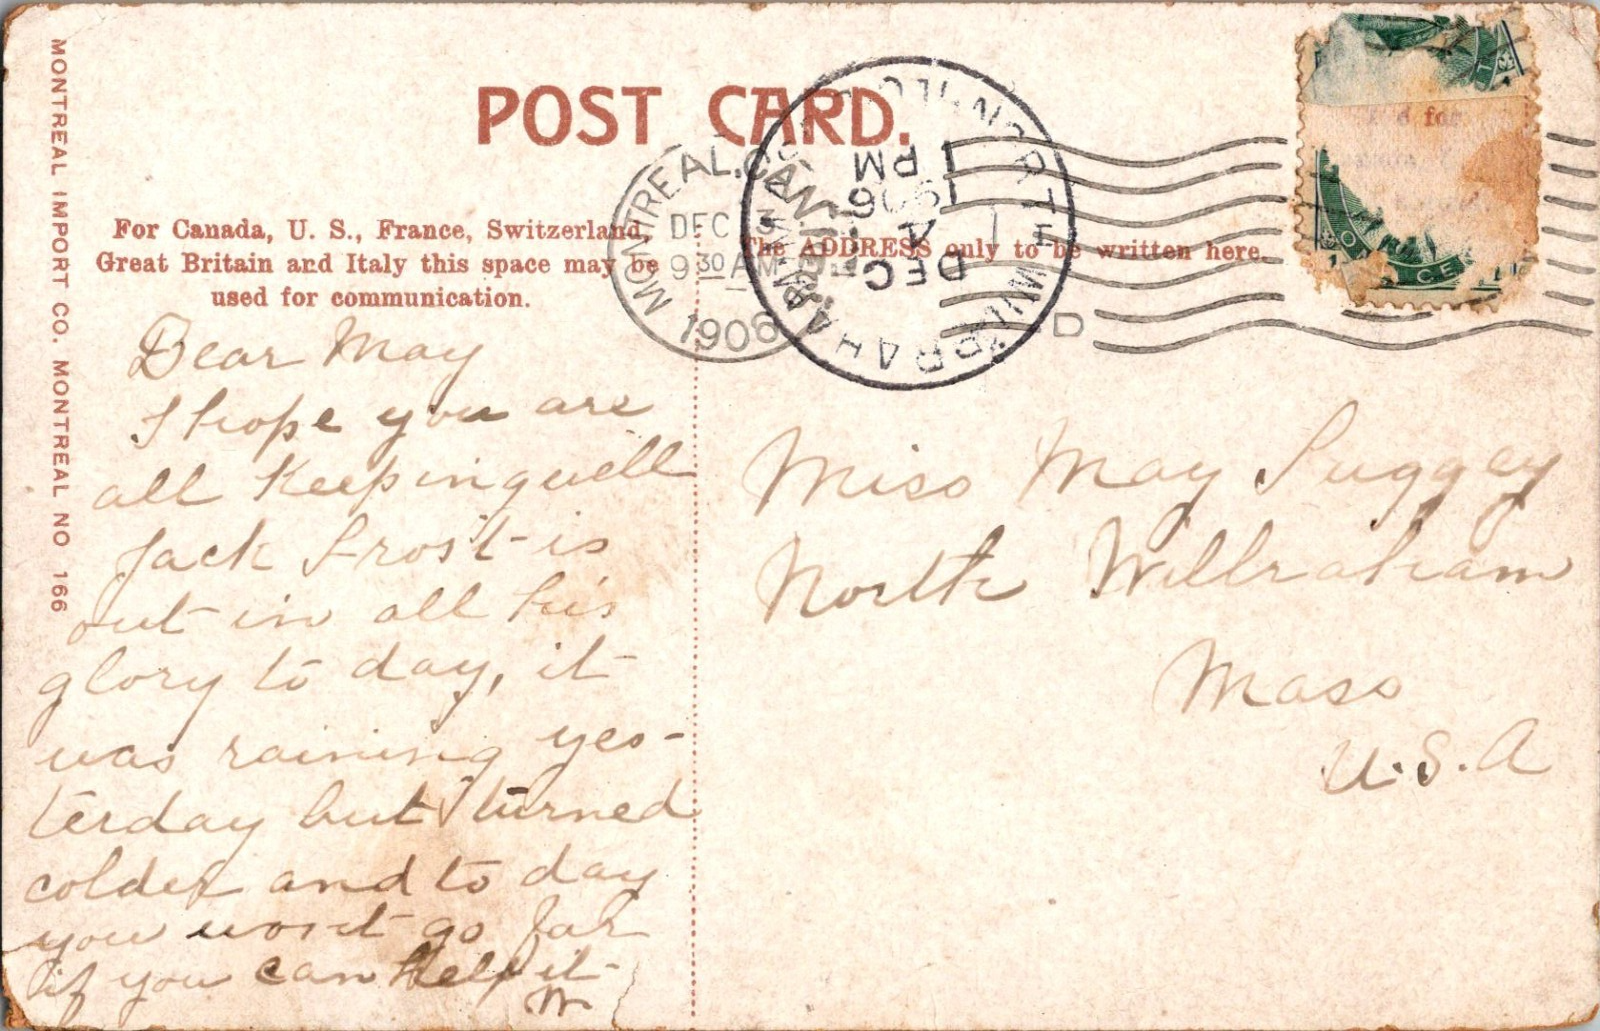 MONTREAL IMPORT CO. MONTREAL NO 166
POST CARD.
For Canada, U. S., France, Switzerland,
Great Britain and Italy this space may be
used for communication.
The ADDRESS only to be written here.
MONTREAL, CANADA
DEC 3
9 30 AM
1906
NORTH WILBRAHAM
DEC
4
PM
1906
D
Dear May
I hope you are
all keeping well
Jack Frost is
out in all his
glory to day, it
was raining yes-
terday but turned
colder and to day
you wont go far
if you can help it
M
Miss May
North Willraham
Mass
U.S.A